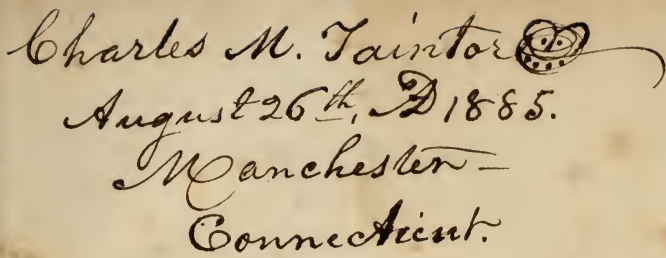 Charles M. Taintor
August 26th, AD 1885.
Manchester—
Connecticut.